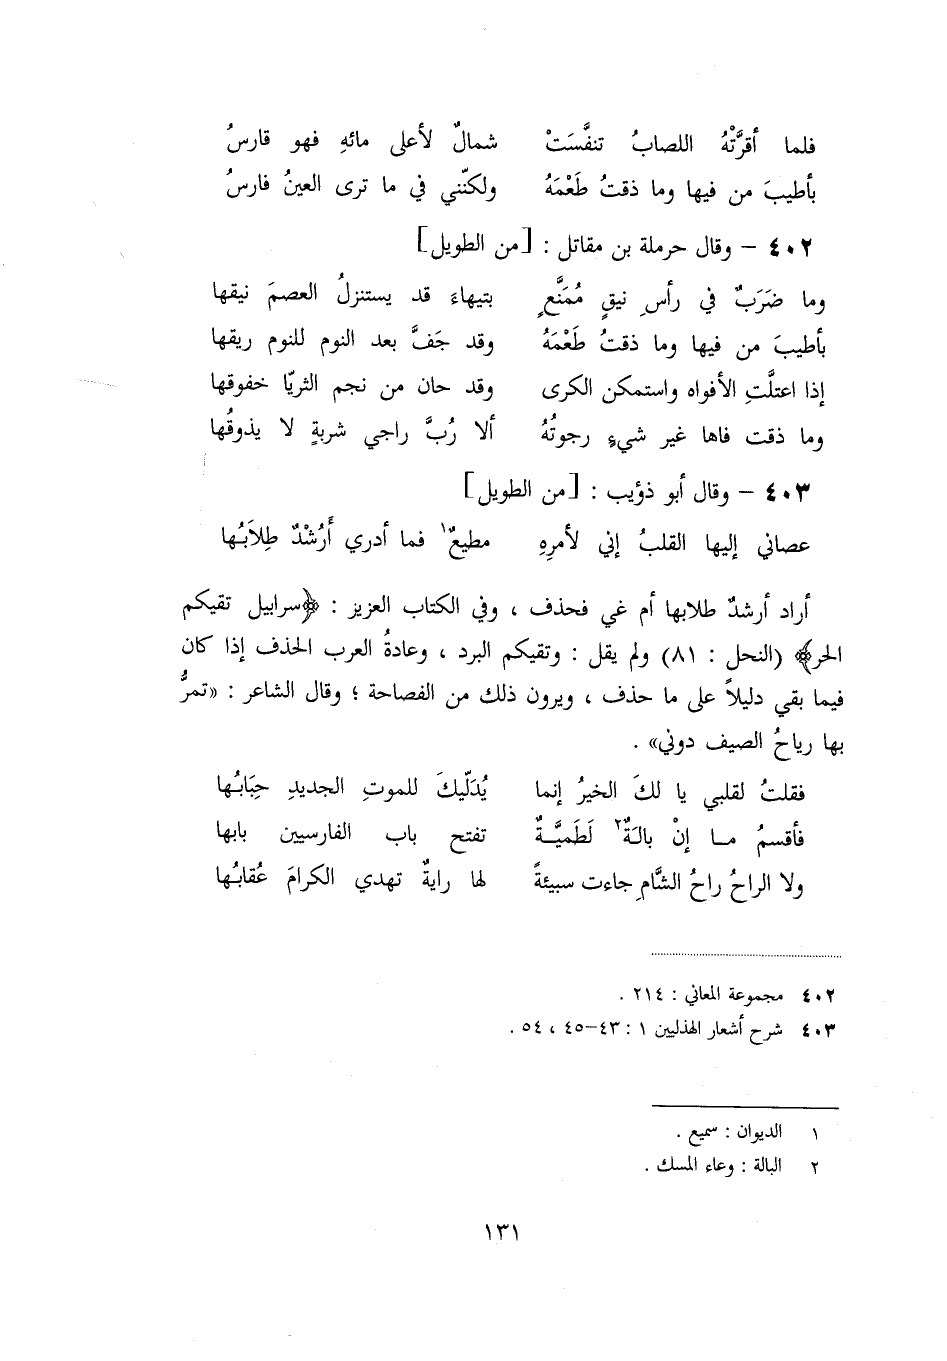 فلما أقرَّتْهُ اللصابُ تنفَّسَتْ شمالٌ لأعلى مائهِ فهو قارسُ
بأطيبَ من فيها وما ذقتُ طَعْمَهُ ولكنّني في ما ترى العينُ فارسُ
٤٠٢ – وقال حرملة بن مقاتل : [من الطويل]
وما ضَرَبٌ في رأسِ نيقٍ مُمَنَّعٍ بتيهاءَ قد يستنزلُ العصمَ نيقها
بأطيبَ من فيها وما ذقتُ طَعْمَهُ وقد جَفَّ بعد النوم للنوم ريقها
إذا اعتلَّتِ الأفواه واستمكن الكرى وقد حان من نجم الثريّا خفوقها
وما ذقت فاها غير شيءٍ رجوتُهُ ألا رُبَّ راجي شربةٍ لا يذوقُها
٤٠٣ – وقال أبو ذؤيب : [من الطويل]
عصاني إليها القلبُ إني لأمرِهِ مطيعٌ١ فما أدري أَرُشْدٌ طِلاَبُها
أراد أرشدٌ طلابها أم غي فحذف ، وفي الكتاب العزيز : ﴿سرابيل تقيكم
الحر﴾ (النحل : ٨١) ولم يقل : وتقيكم البرد ، وعادةُ العرب الحذف إذا كان
فيما بقي دليلاً على ما حذف ، ويرون ذلك من الفصاحة ؛ وقال الشاعر : «تمرُّ
بها رياحُ الصيف دوني» .
فقلتُ لقلبي يا لكَ الخيرُ إنما يُدَلّيكَ للموتِ الجديدِ حِبَابُها
فأقسمُ ما إنْ بالةٌ٢ لَطَميَّةٌ تفتح باب الفارسيين بابها
ولا الراحُ راحُ الشَّامِ جاءت سبيئةً لها رايةٌ تهدي الكرامَ عُقابُها
٤٠٢ مجموعة المعاني : ٢١٤ .
٤٠٣ شرح أشعار الهذليين ١ : ٤٣–٤٥ ، ٥٤ .
١ الديوان : سميع .
٢ البالة : وعاء المسك .
١٣١